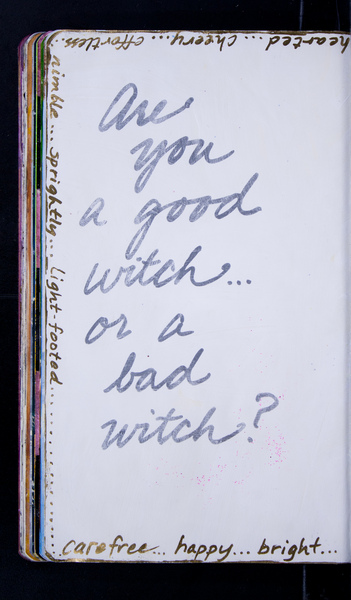 Are
you
a good
witch...
or a
bad
witch?
carefree... happy... bright...
nimble... sprightly... light-footed...............
hearted... cheery... effortless...